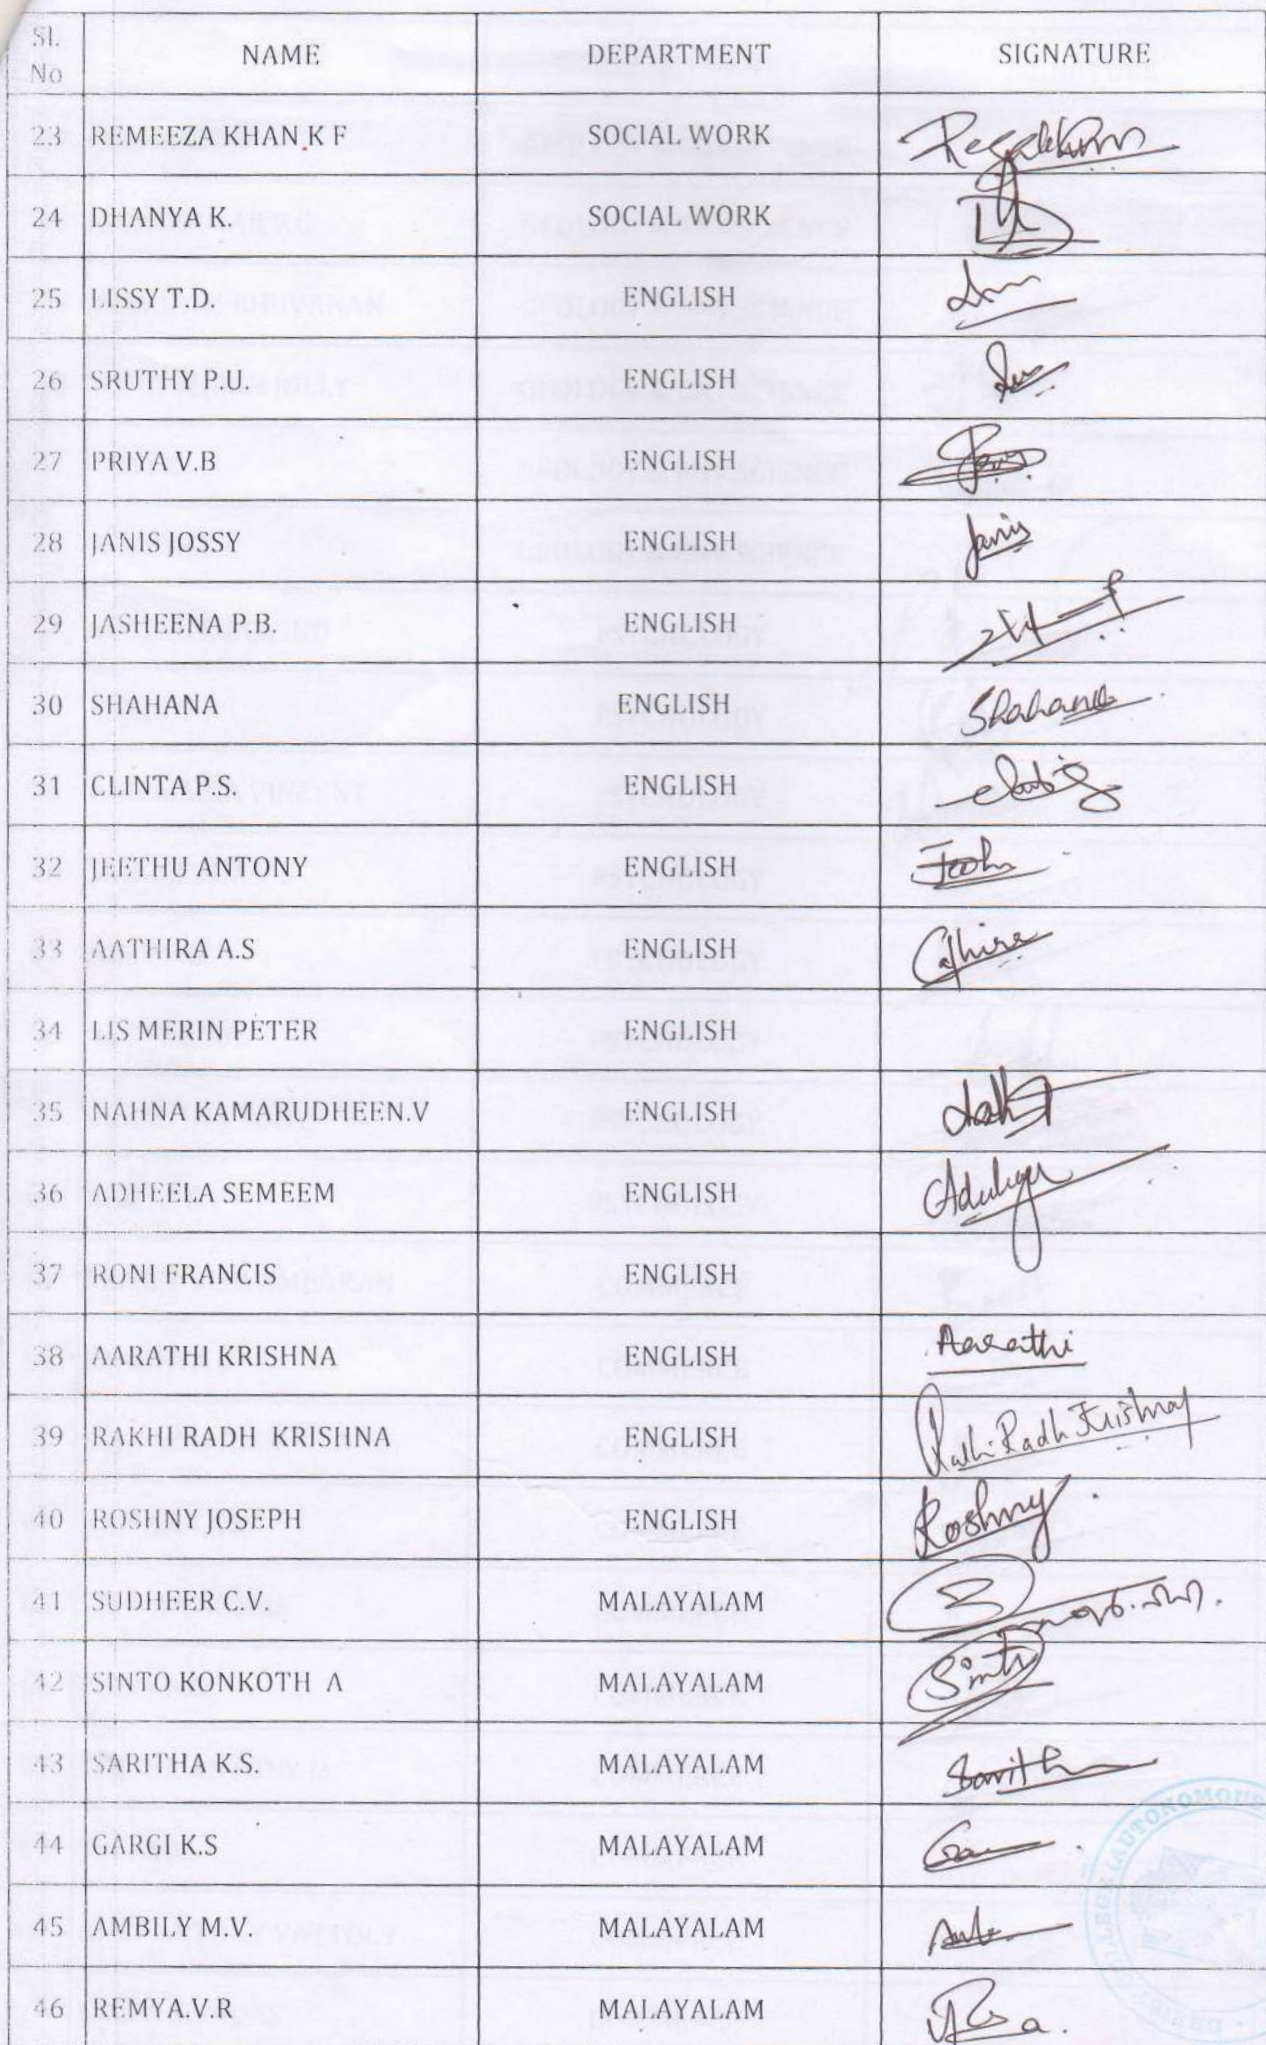 Sl. No NAME DEPARTMENT SIGNATURE
23 REMEEZA KHAN K F SOCIAL WORK
24 DHANYA K. SOCIAL WORK
25 LISSY T.D. ENGLISH
26 SRUTHY P.U. ENGLISH
27 PRIYA V.B ENGLISH
28 JANIS JOSSY ENGLISH Janis
29 JASHEENA P.B. ENGLISH
30 SHAHANA ENGLISH Shahana
31 CLINTA P.S. ENGLISH
32 JEETHU ANTONY ENGLISH
33 AATHIRA A.S ENGLISH
34 LIS MERIN PETER ENGLISH
35 NAHNA KAMARUDHEEN.V ENGLISH
36 ADHEELA SEMEEM ENGLISH
37 RONI FRANCIS ENGLISH
38 AARATHI KRISHNA ENGLISH Aarathi
39 RAKHI RADH KRISHNA ENGLISH Rakhi Radh Krishna
40 ROSHNY JOSEPH ENGLISH Roshny
41 SUDHEER C.V. MALAYALAM
42 SINTO KONKOTH A MALAYALAM Sinto
43 SARITHA K.S. MALAYALAM Saritha
44 GARGI K.S MALAYALAM
45 AMBILY M.V. MALAYALAM
46 REMYA.V.R MALAYALAM
(AUTONOMOUS